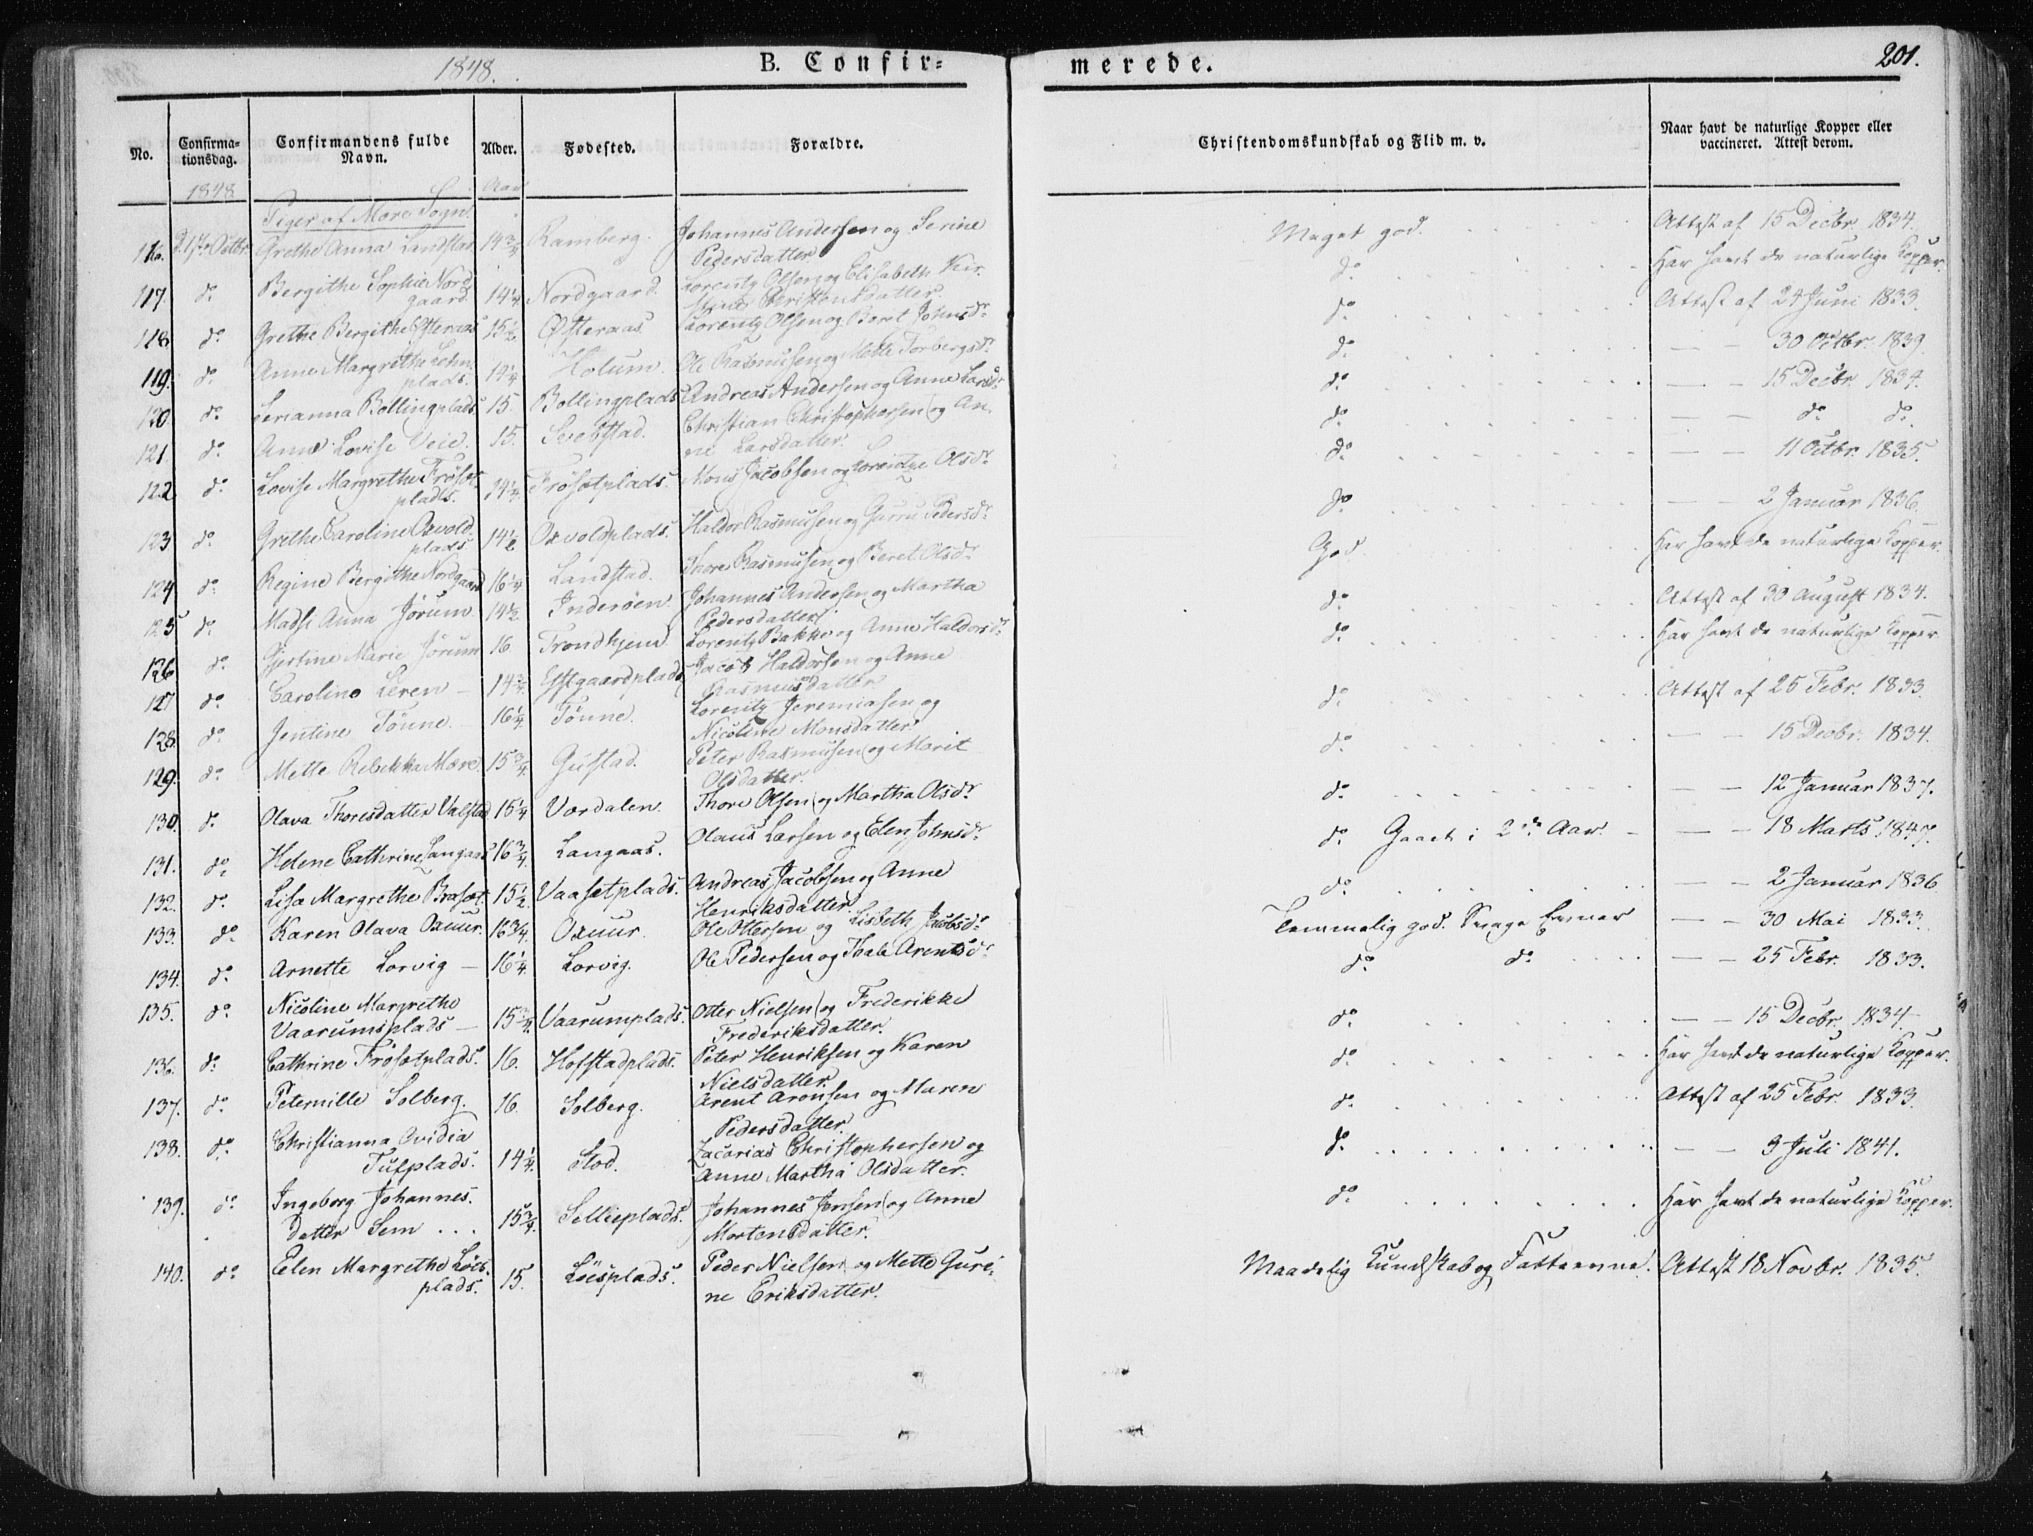 1848.
B. Confirmerede.
201.
No. Confirmationsdag. Confirmandens fulde Navn. Alder. Fødested. Forældre. Christendomskundskab og Flid m. v. Naar havt de naturlige Kopper eller vaccineret. Attest derom.
1848 Aar
Piger af Mære Sogn.
116. Octbr. Grethe Anna Landstad 14 3/4 Ramberg. Johannes Andersen og Serine Pedersdatter Meget god. Attest af 15 Decbr. 1834.
117. do Bergithe Sophie Nordgaard. 14 1/4 Nordgaard. Lorentz Olsen og Elisabeth Kirstine Christensdatter. do Har havt de naturlige Kopper.
118. do Grethe Bergithe Østeraas 15 1/2 Østeraas. Lorentz Olsen og Beret Johnsdr do Attest af 24 Juni 1833.
119. do Anne Margrethe plads. 14 1/4 Holum. Ole Rasmusen og Mette Torbergsdr do — — 30 Octbr. 1839.
120. do Serianna Bollingplads. 15. Bollingplads Andreas Andersen og Anne Larsdr do — — 15 Decbr. 1834.
121. do Anne Lovise Veie. 15. Christian Christophersen og Anne Larsdatter. do — — do do
122. do Lovise Margrethe Frösetplads. 14 1/4 Frösetplads. Mons Jacobsen og Lorentze Olsdr do — — 11 Octbr. 1835.
123. do Grethe Caroline Oxvoldplads 14 1/2 Oxvoldplads. Haldor Rasmusen og Gurru Pedersdr do — — 2 Januar 1836.
124. do Regine Bergithe Nordgaard 16 1/4 Landstad. Thore Rasmusen og Beret Olsdr God Har havt de naturlige Kopper.
125. do Madse Anna Jörum 14 1/2 Inderöen. Johannes Andersen og Martha Pedersdatter do Attest af 30 August 1834.
126. do Gjertine Marie Jörum 16 Trondhjem. Lorentz Bakke og Anne Haldorsdr do Har havt de naturlige Kopper
127. do Caroline Leren — 14 3/4 Jacob Haldorsen og Anne Rasmusdatter. do Attest af 25 Febr. 1833.
128. do Jentine Tönne. 16 1/4 Tönne. Lorentz Jeremiasen og Nicoline Monsdatter. do — — 15 Decbr. 1834.
129. do Mette Rebekka Mære. 15 3/4 Gustad. Peter Rasmusen og Marit Olsdatter. do — — 12 Januar 1837.
130. do Olava Thoresdatter Valstad 15 1/4 Værdalen. Thore Olsen og Martha Olsdr do Gaaet i 2de Aar. — — 18 Marts 1847.
131. do Helene Cathrine Langaas 16 3/4 Langaas. Olaus Larsen og Elen Johnsdr
132. do Lisa Margrethe Braset 15 1/2 Vaasetplads. Andreas Jacobsen og Anne Henriksdatter. do — — 2 Januar 1836
133. do Karen Olava Oxuur. 16 3/4 Oxuur. Ole Ottersen og Lisbeth Jacobsdr Temmelig god. Svage Evner — — 30 Mai 1833.
134. do Arnette Lorvig — 16 1/4 Lorvig. Ole Pedersen og Thale Arentsdr do do — — 25 Febr. 1833.
135. do Nicoline Margrethe Vaarumsplads — 15 3/4 Vaarumplads. Otter Nielsen og Frederikke Frederiksdatter. do — — 15 Decbr. 1834
136. do Cathrine Frösetplads. 16. Hofstadplads. Peter Henriksen og Karen Nielsdatter. do Har havt de naturlige Kopper.
137. do Peternille Solberg. 16. Solberg. Arent Aronsen og Maren Pedersdatter do Attest af 25 Febr. 1833.
138. do Christianna Ovidia Tufplads. 14 1/4. Stod. Zacarias Christophersen og Anne Martha Olsdatter. do — — 9 Juli 1841.
139. do Ingeborg Johannesdatter Sem ... 15 3/4. Sellieplads. Johannes Jensen og Anne Mortensdatter. do Har havt de naturlige Kopper.
140. do Eelen Margrethe Löesplads. 15. Löesplads. Peder Nielsen og Mette Gurine Eriksdatter. Maadelig Kundskab og Fatteevne. Attest 18 Novbr. 1835.